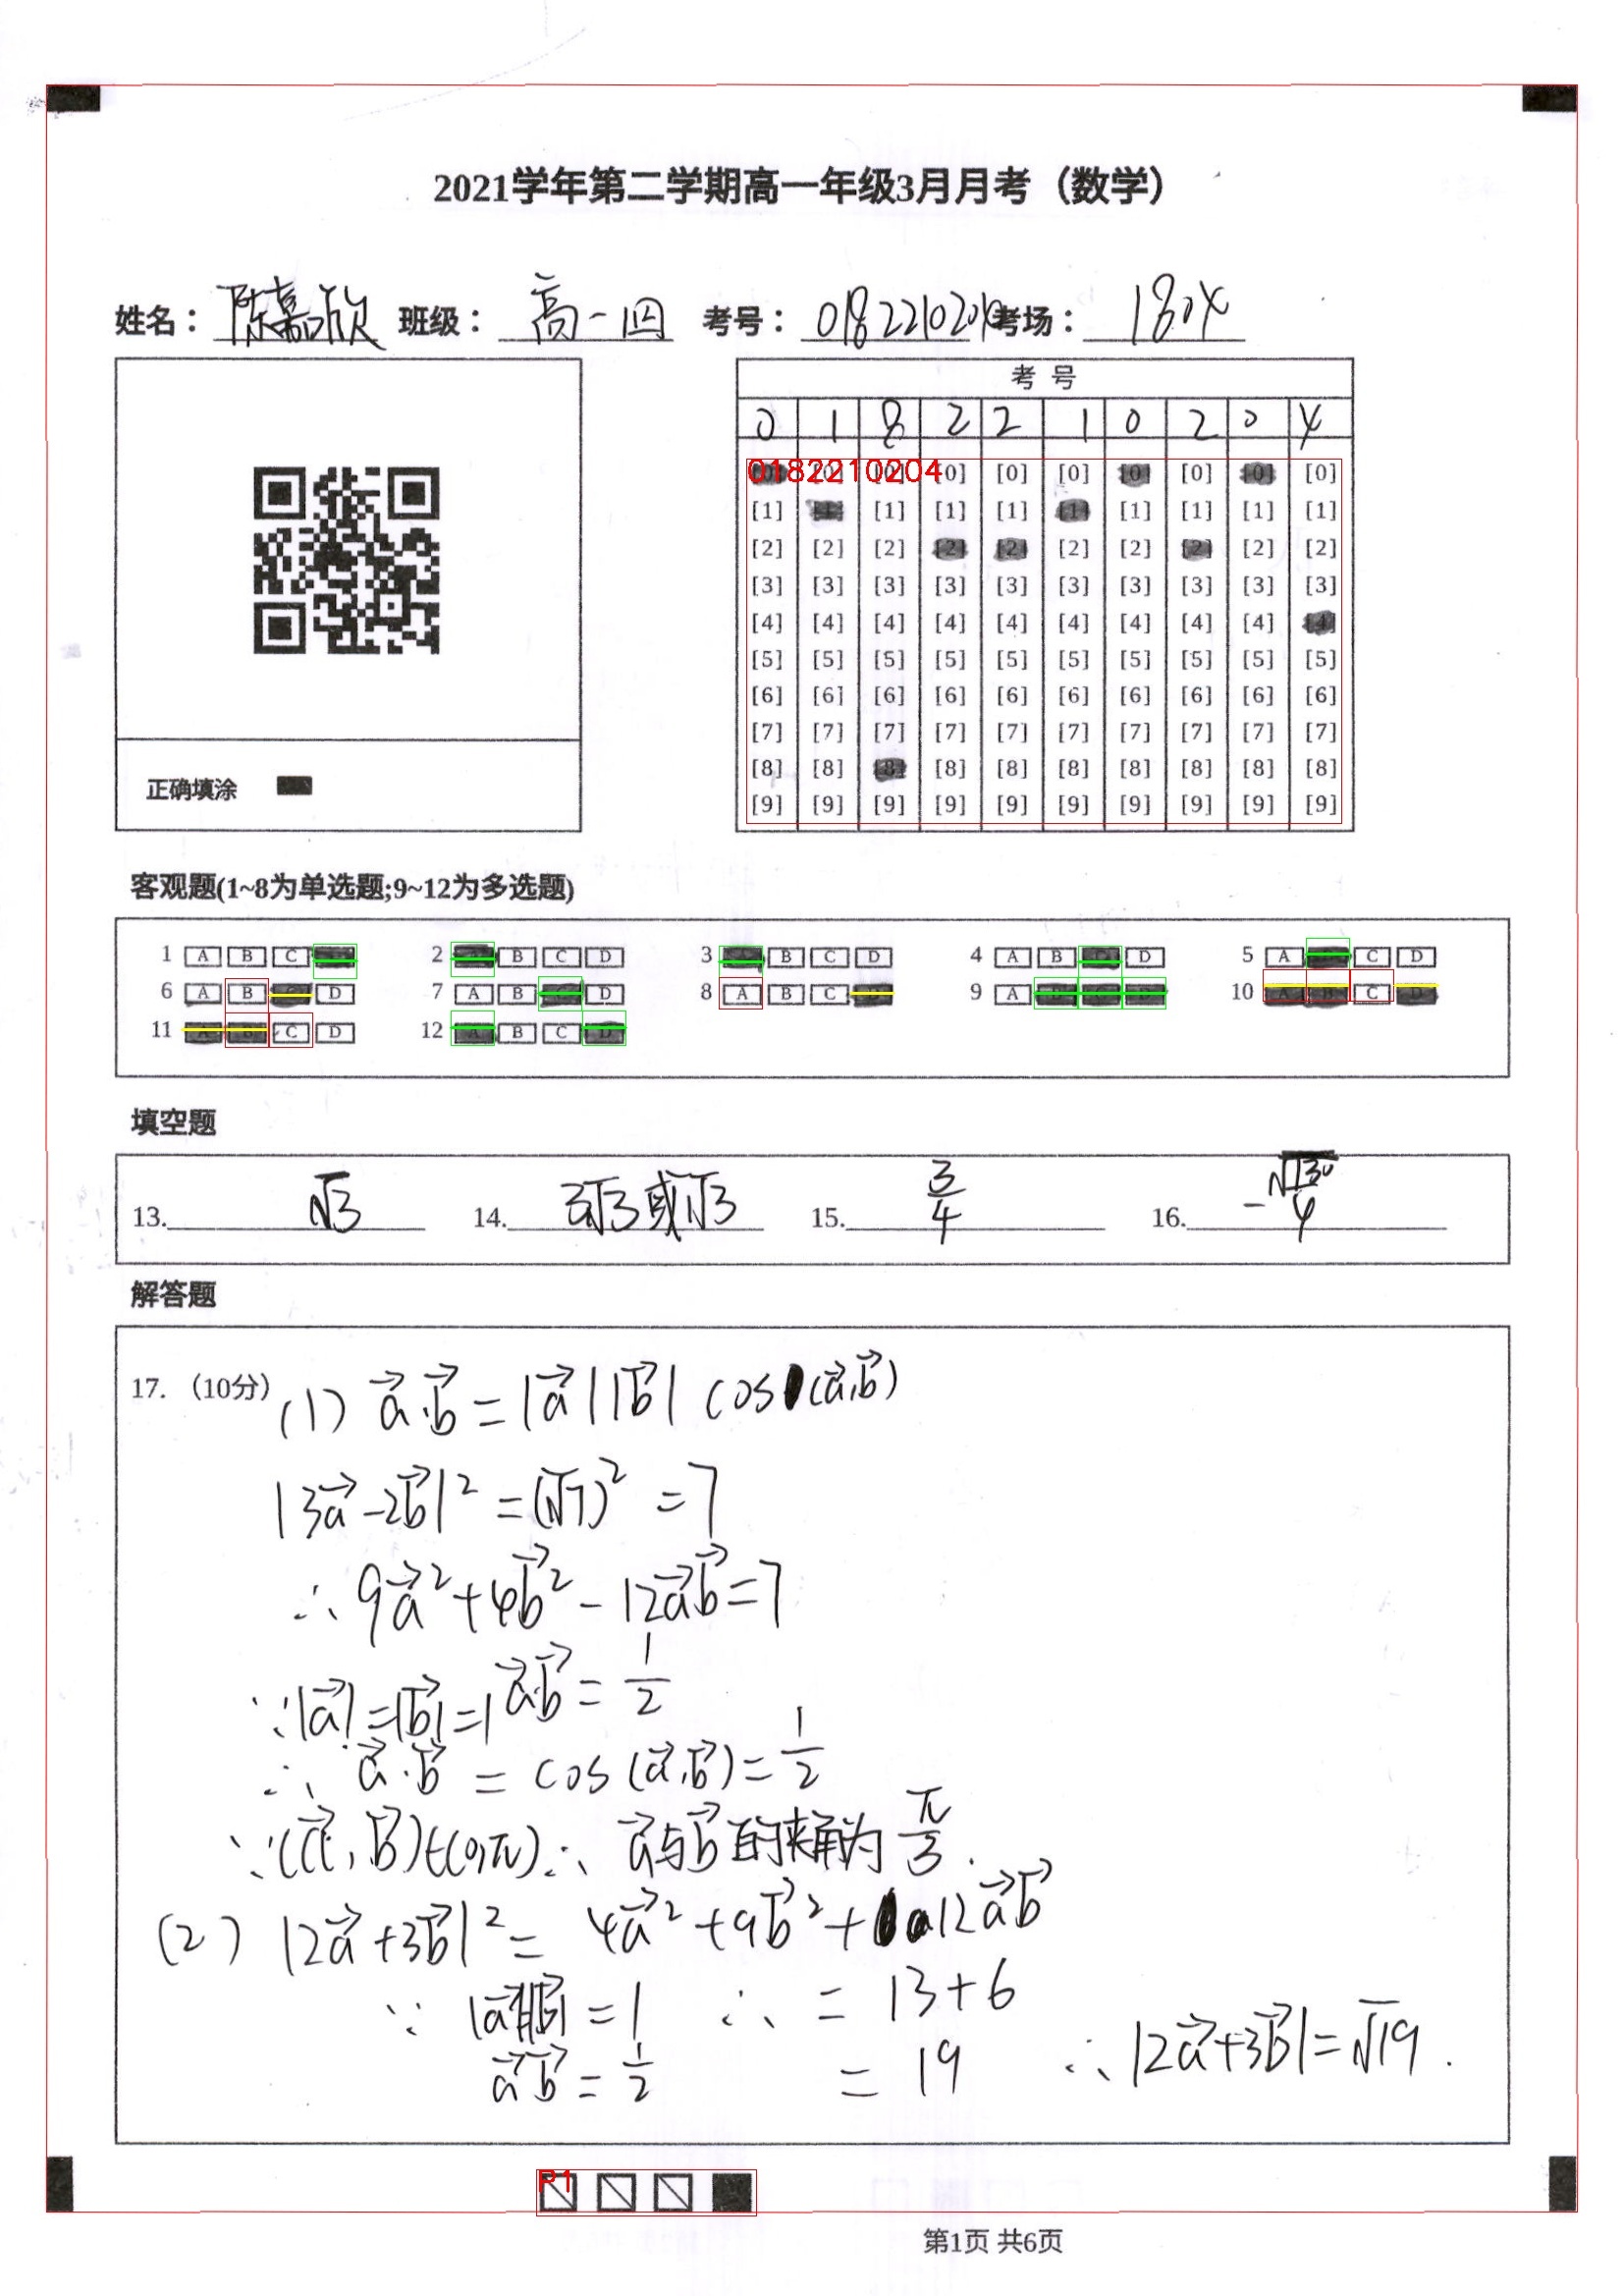 2021学年第二学期高一年级3月月考（数学）
姓名： 陈嘉欣 班级： 高一四 考号： 0182210204 考场： 1804
考 号
0 1 8 2 2 1 0 2 0 4
0182210204 [0] [0] [0] [0] [0] [0] [0]
[1] [1] [1] [1] [1] [1] [1] [1] [1] [1]
[2] [2] [2] [2] [2] [2] [2] [2] [2] [2]
[3] [3] [3] [3] [3] [3] [3] [3] [3] [3]
[4] [4] [4] [4] [4] [4] [4] [4] [4] [4]
[5] [5] [5] [5] [5] [5] [5] [5] [5] [5]
[6] [6] [6] [6] [6] [6] [6] [6] [6] [6]
[7] [7] [7] [7] [7] [7] [7] [7] [7] [7]
[8] [8] [8] [8] [8] [8] [8] [8] [8] [8]
[9] [9] [9] [9] [9] [9] [9] [9] [9] [9]
正确填涂
客观题(1~8为单选题;9~12为多选题)
1 A B C 2 B C D 3 B C D 4 A B C D 5 A C D
6 A B C D 7 A B C D 8 A B C D 9 A B C D 10 A B C D
11 A B C D 12 A B C D
填空题
13. √3 14. 3√3或√3 15. 3/4 16. -√130/4
解答题
17. （10分） (1) a⃗·b⃗ = |a⃗||b⃗| cos(a⃗,b⃗)
|3a⃗-2b⃗|² = (√7)² = 7
∴ 9a⃗²+4b⃗²-12a⃗b⃗=7
∵|a⃗|=|b⃗|=1 a⃗·b⃗ = 1/2
∴ a⃗·b⃗ = cos(a⃗,b⃗)=1/2
∵(a⃗,b⃗)∈(0,π)∴ a⃗与b⃗的夹角为 π/3.
(2) |2a⃗+3b⃗|² = 4a⃗²+9b⃗²+12a⃗b⃗
∵ |a⃗||b⃗| = 1 ∴ = 13+6
a⃗b⃗ = 1/2 = 19 ∴ |2a⃗+3b⃗|=√19.
P1
第1页 共6页